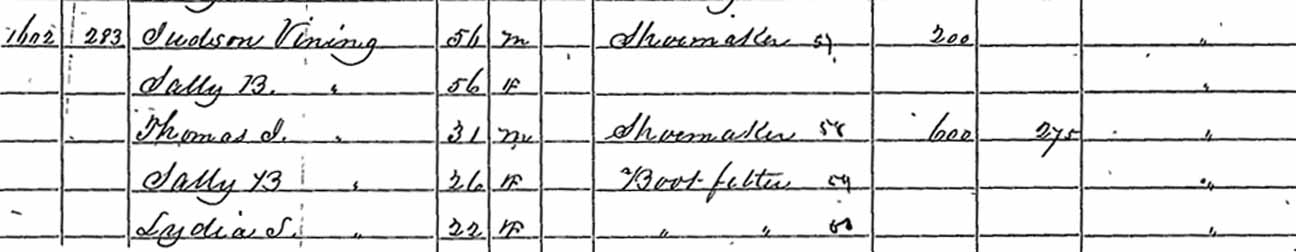 1602 283 Judson Vining 56 M Shoemaker 57 200 "
Sally B. " 56 F "
Thomas J. " 31 M Shoemaker 58 600 275 "
Sally B " 26 F Boot fitter 59 "
Lydia S. " 22 F " " 60 "